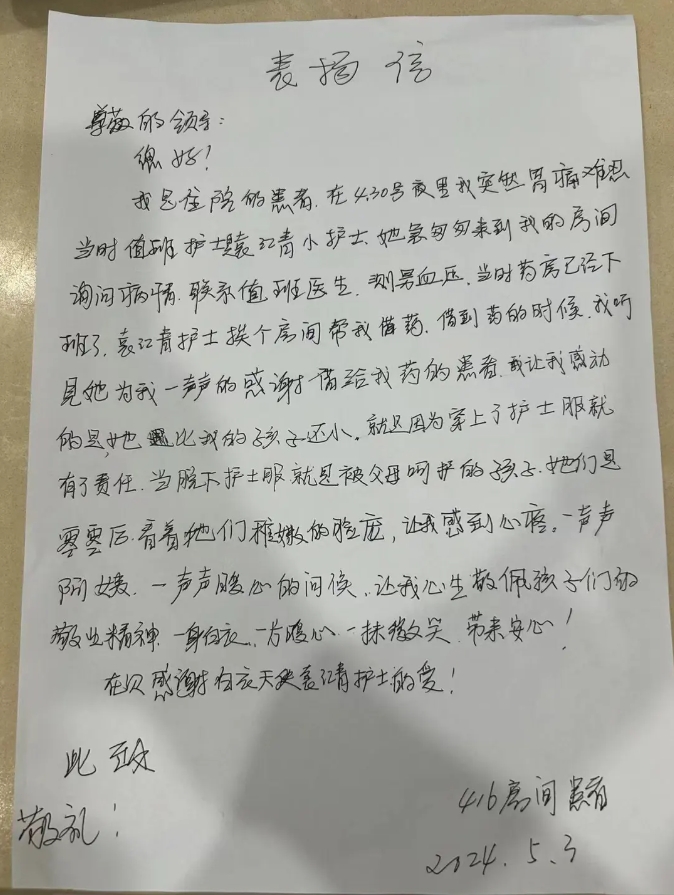 表扬信
尊敬的领导:
您好!
我是住院的患者.在4.30号夜里我突然胃痛难忍
当时值班护士是袁江青小护士.她急匆匆来到我的房间
询问病情.联系值班医生.测量血压.当时药房已经下
班了.袁江青护士挨个房间帮我借药.借到药的时候.我听
见她为我一声声的感谢借给我药的患者.最让我感动
的是,她比我的孩子还小.就是因为穿上了护士服就
有了责任.当脱下护士服就是被父母呵护的孩子.她们是
零零后.看着她们稚嫩的脸庞,让我感到心疼.一声声
阿姨.一声声暖心的问候.让我心生敬佩孩子们的
敬业精神.一身白衣.一方暖心.一抹微笑.带来安心!
在次感谢白衣天使袁江青护士的爱!
此致
敬礼!
416房间患者
2024.5.3